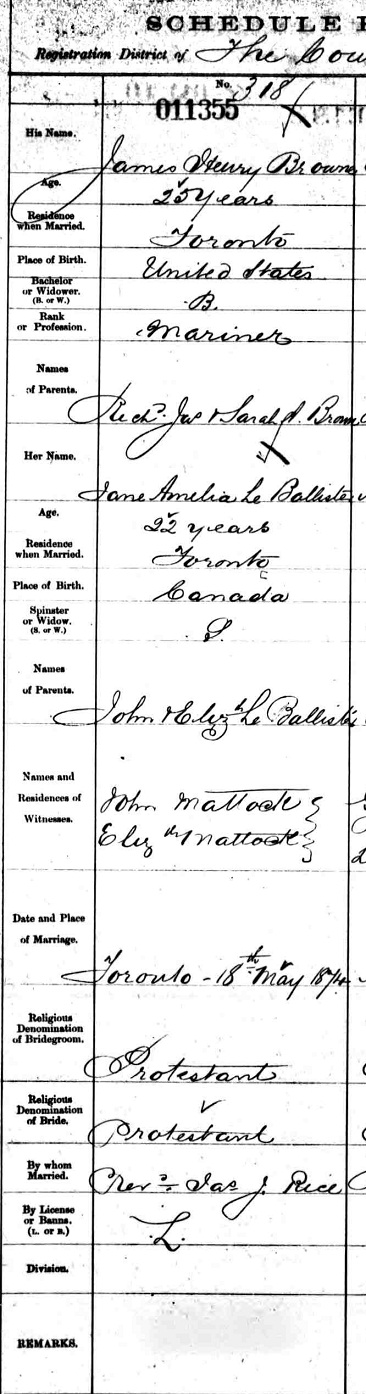 SCHEDULE
Registration District of The Cou
No. 318
011355
His Name.
James Henry Browne
Age.
25 years
Residence
when Married.
Toronto
Place of Birth.
United States
Bachelor
or Widower.
(B. or W.)
B.
Rank
or Profession.
Mariner
Names
of Parents.
Richd. Jas & Sarah A. Browne
Her Name.
Jane Amelia Le Ballister
Age.
22 years
Residence
when Married.
Toronto
Place of Birth.
Canada
Spinster
or Widow.
(S. or W.)
S.
Names
of Parents.
John & Elizth Le Ballister
Names and
Residences of
Witnesses.
John Mattock
Elizth Mattock
Date and Place
of Marriage.
Toronto - 18th May 1874
Religious
Denomination
of Bridegroom.
Protestant
Religious
Denomination
of Bride.
Protestant
By whom
Married.
Revd. Jas J. Rice
By License
or Banns.
(L. or B.)
L.
Division.
REMARKS.